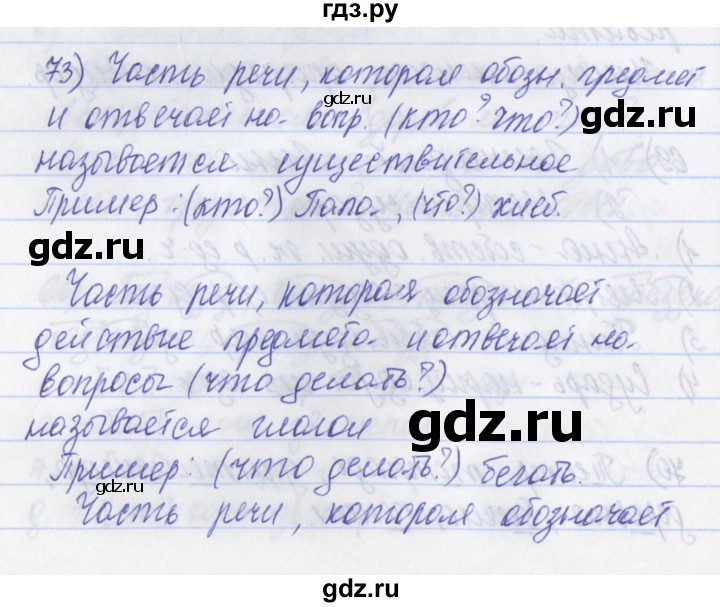 гдз.ру
73) Часть речи, которая обозн. предмет
и отвечает на вопр. (кто? что?)
gdz.ru
gdz.ru
называется существительное
Пример: (кто?) Папа, (что?) хлеб.
gdz.ru
Часть речи, которая обозначает
действие предмета и отвечает на
вопросы (что делать?)
называется глагол
gdz.ru
Пример: (что делать?) бегать.
gdz.ru
Часть речи, которая обозначает
gdz.ru